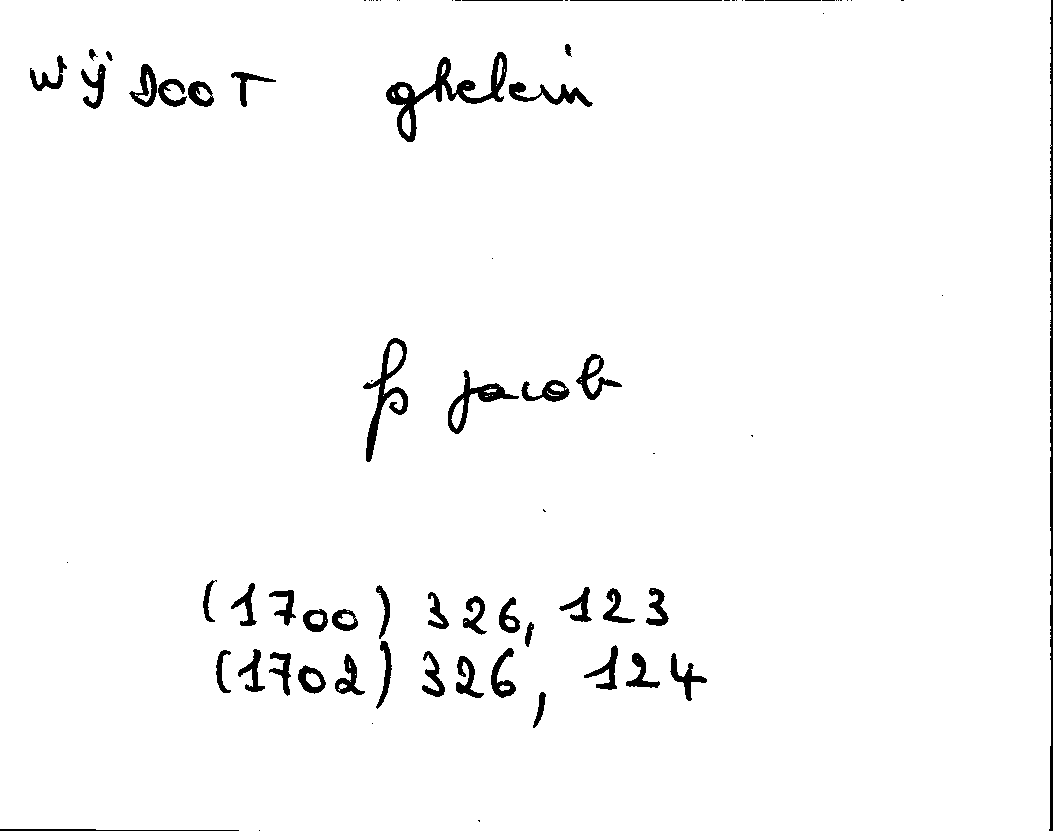 wÿDOOT ghelein
p jacob
(1700) 326, 123
(1702) 326, 124